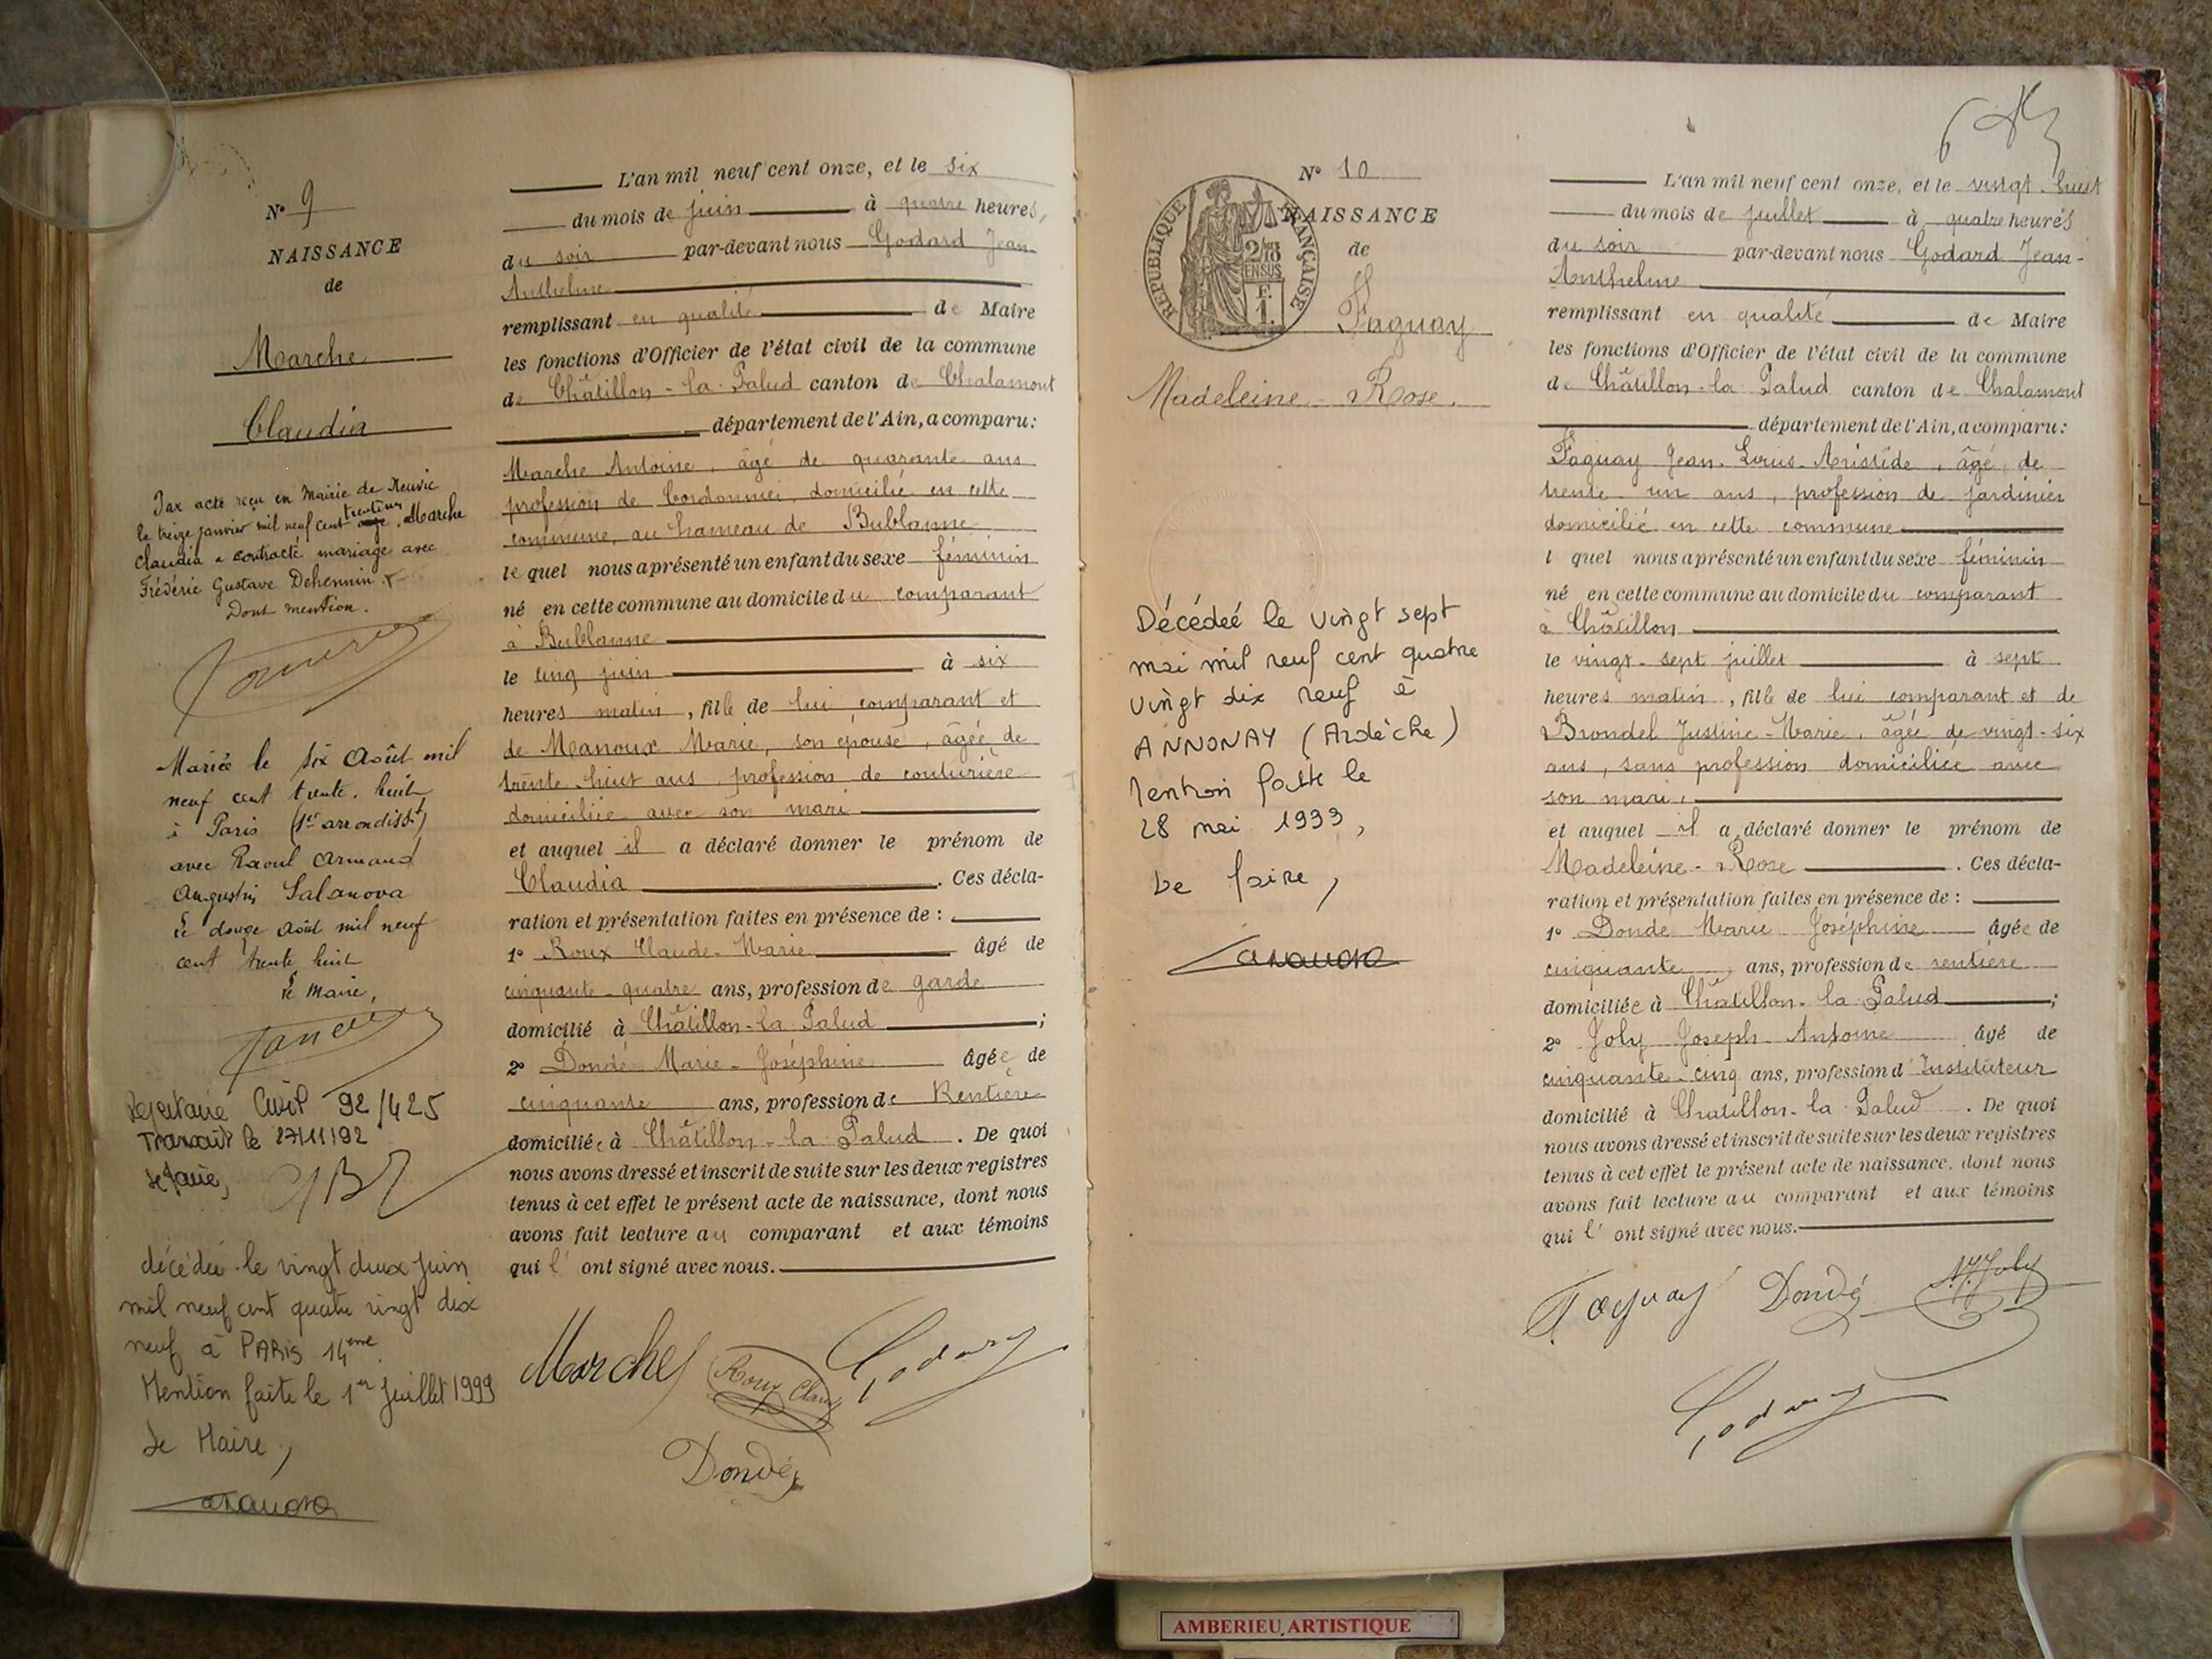 N° 9
NAISSANCE
de
Marche
Claudia
Par acte reçu en Mairie de Neuvic
le treize janvier mil neuf cent trente un, Marche
Claudia a contracté mariage avec
Frédéric Gustave Dehennin
Dont mention.
Mariée le six Août mil
neuf cent trente. huit
à Paris (1er arrondisst)
avec Raoul Armand
Augustin Salanova
Le douze Août mil neuf
cent trente huit
Le Maire,
Répertoire Civil 92/425
Transcrit le 27/11/92
Le Maire,
décédée le vingt deux juin
mil neuf cent quatre vingt dix
neuf à PARIS 14ème.
Mention faite le 1er juillet 1999
Le Maire,
L'an mil neuf cent onze, et le six
du mois de juin à quatre heures,
du soir par-devant nous Godard Jean
Anthelme
remplissant en qualité de Maire
les fonctions d'Officier de l'état civil de la commune
de Châtillon-la-Palud canton de Chalamont
département de l'Ain, a comparu:
Marche Antoine, âgé de quarante ans
profession de Cordonnier, domicilié en cette
commune, au hameau de Bublanne
le quel nous a présenté un enfant du sexe féminin
né en cette commune au domicile du comparant
à Bublanne
le cinq juin à six
heures matin, fille de lui comparant et
de Manoux Marie, son épouse, âgée de
trente-huit ans, profession de couturière
domiciliée avec son mari
et auquel il a déclaré donner le prénom de
Claudia. Ces décla-
ration et présentation faites en présence de :
1° Roux Claude-Marie âgé de
cinquante-quatre ans, profession de garde
domicilié à Châtillon-la-Palud;
2° Dondé Marie-Joséphine âgée de
cinquante ans, profession de Rentière
domiciliée à Châtillon-la-Palud. De quoi
nous avons dressé et inscrit de suite sur les deux registres
tenus à cet effet le présent acte de naissance, dont nous
avons fait lecture au comparant et aux témoins
qui l' ont signé avec nous.
Marche Roux Claude Godard
Dondé
N° 10
NAISSANCE
de
RÉPUBLIQUE FRANÇAISE
2/10 EN SUS
F.
1.
Faguay
Madeleine-Rose.
Décédeé le vingt sept
mai mil neuf cent quatre
vingt dix neuf à
ANNONAY (Ardèche)
Mention faite le
28 mai 1999,
Le Maire,
L'an mil neuf cent onze, et le vingt-huit
du mois de juillet à quatre heures
du soir par-devant nous Godard Jean-
Anthelme
remplissant en qualité de Maire
les fonctions d'Officier de l'état civil de la commune
de Châtillon-la-Palud canton de Chalamont
département de l'Ain, a comparu:
Faguay Jean-Louis-Aristide, âgé de
trente-un ans, profession de jardinier
domicilié en cette commune
l quel nous a présenté un enfant du sexe féminin
né en cette commune au domicile du comparant
à Châtillon
le vingt-sept juillet à sept
heures matin, fille de lui comparant et de
Brondel Justine-Marie, âgée de vingt-six
ans, sans profession domiciliée avec
son mari,
et auquel il a déclaré donner le prénom de
Madeleine-Rose. Ces décla-
ration et présentation faites en présence de :
1° Dondé Marie Joséphine âgée de
cinquante ans, profession de rentière
domiciliée à Châtillon-la-Palud;
2° Joly Joseph-Antoine âgé de
cinquante-cinq ans, profession d'Instituteur
domicilié à Chatillon-la-Palud. De quoi
nous avons dressé et inscrit de suite sur les deux registres
tenus à cet effet le présent acte de naissance, dont nous
avons fait lecture au comparant et aux témoins
qui l' ont signé avec nous.
Faguay Dondé Joly
Godard
AMBERIEU ARTISTIQUE